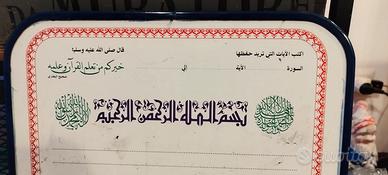 اكتب الآيات التي تريد حفظها
قال صلى الله عليه وسلم
السورة
الآية
إلى
خيركم من تعلم القرآن وعلمه
صحيح البخاري
بسم الله الرحمن الرحيم
subito